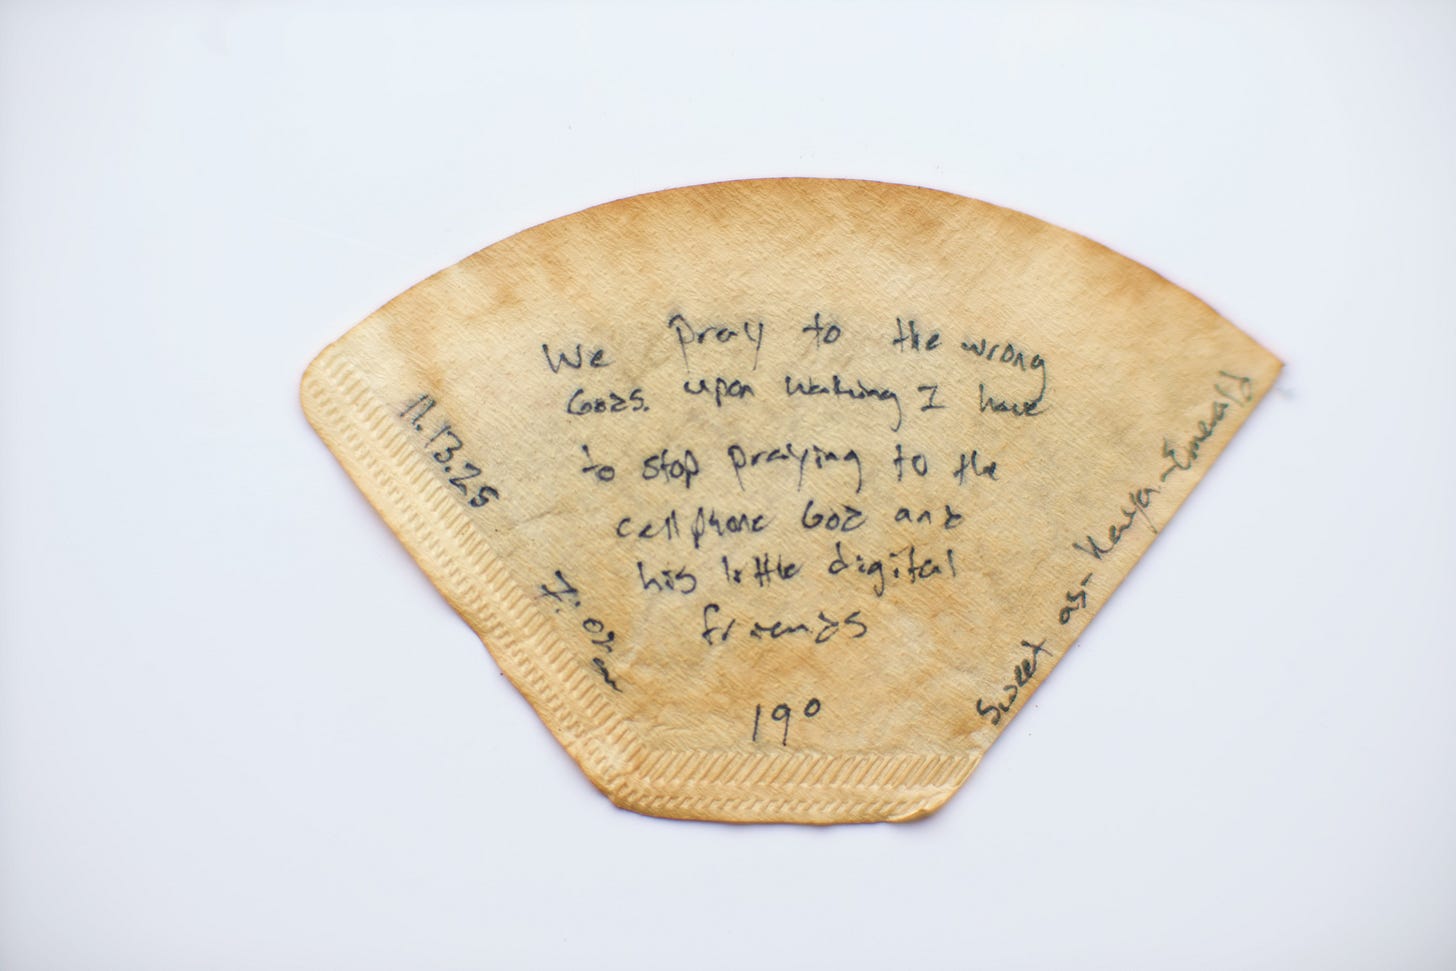 We pray to the wrong
Gods. upon waking I have
to stop praying to the
cellphone God and
his little digital
friends
19°
11.13.25
7:02am
Sweet as- Kaya-Emerald